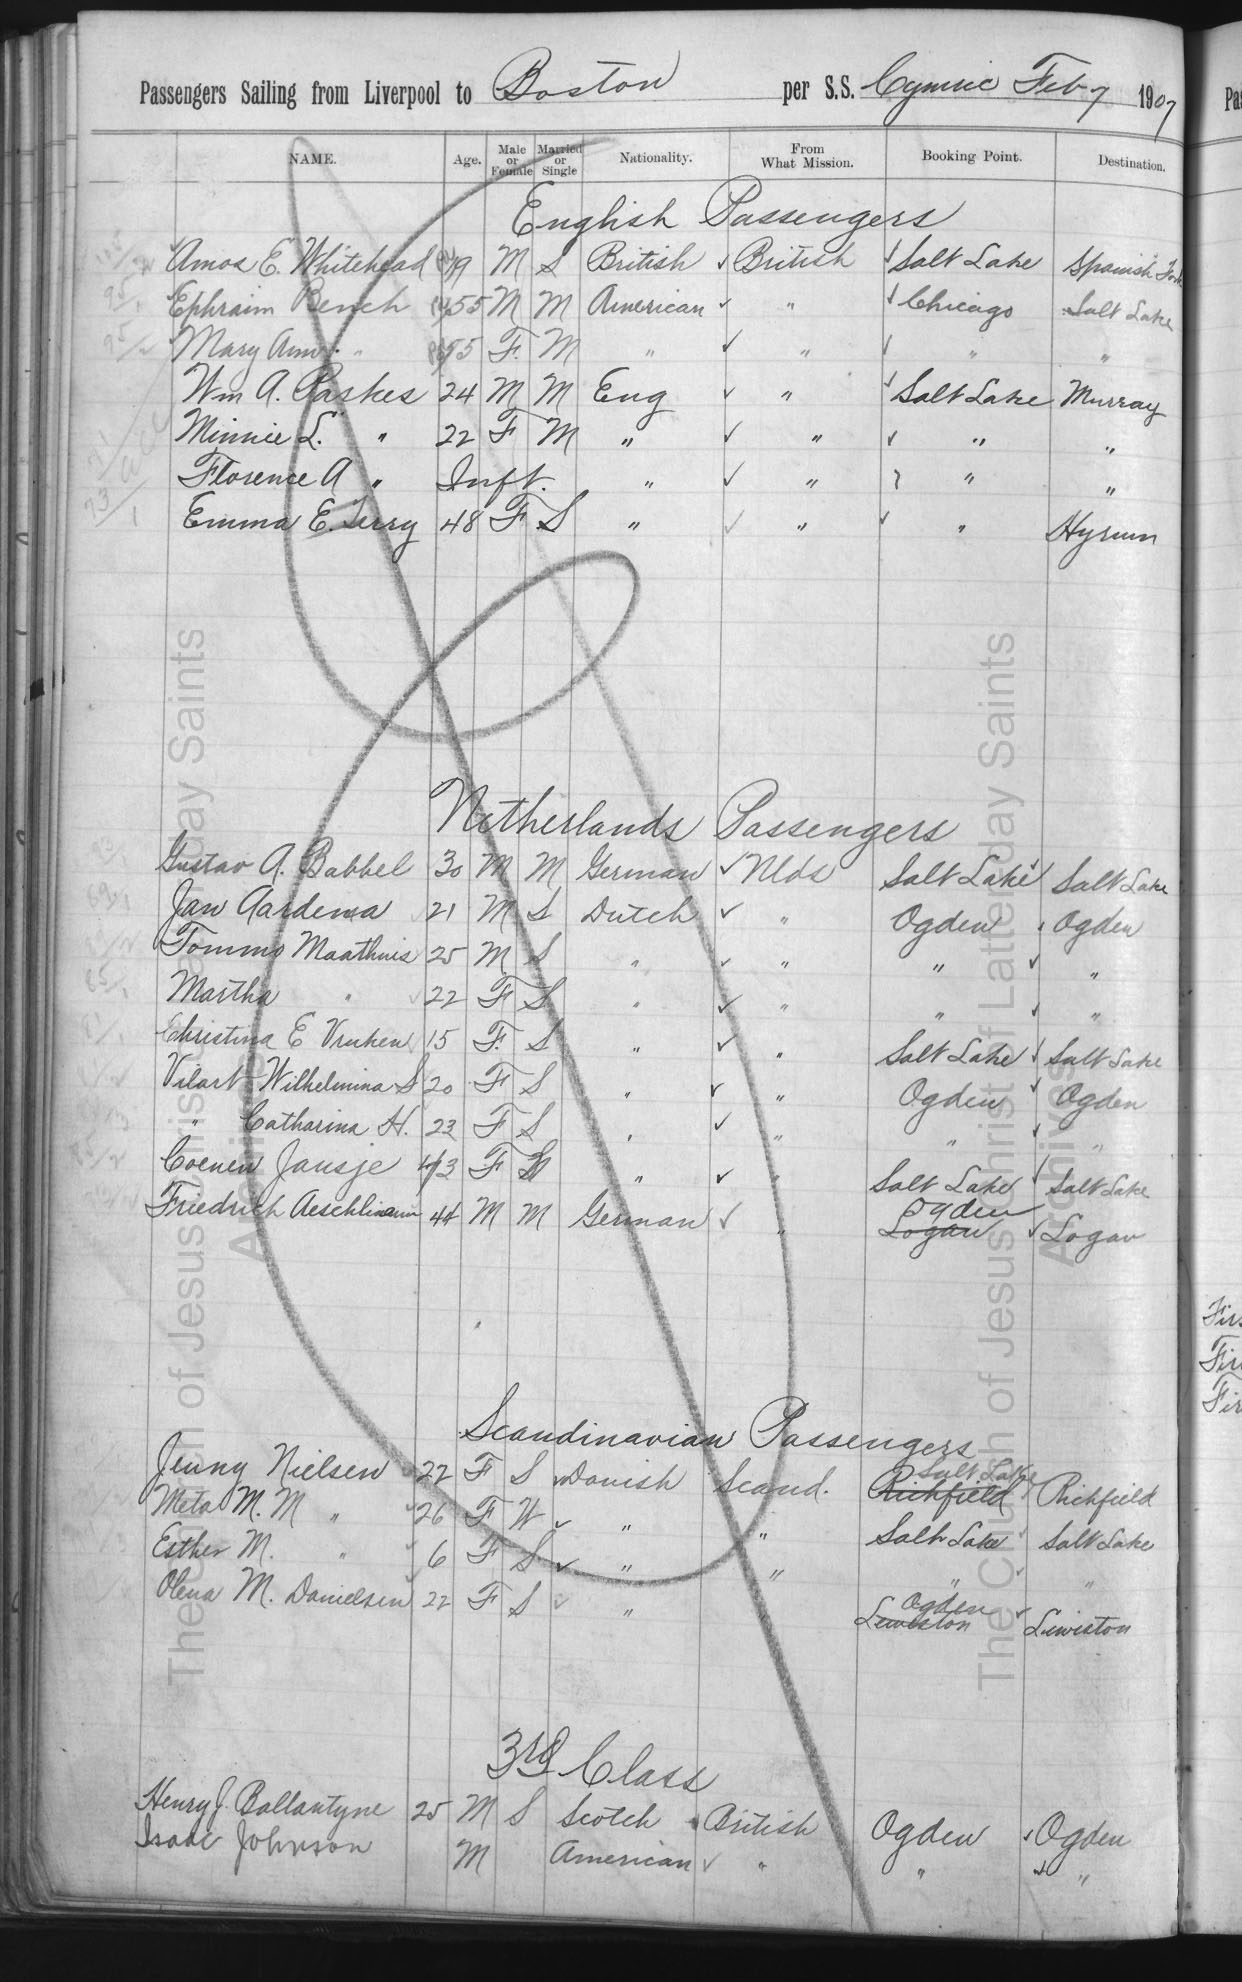 Passengers Sailing from Liverpool to Boston per S.S. Cymric Feb 7 1907
NAME. Age. Male or Female Married or Single Nationality. From What Mission. Booking Point. Destination.
English Passengers
Amos E. Whitehead 19 M S British British Salt Lake Spanish Fork
Ephraim Bench 55 M M American " Chicago Salt Lake
Mary Ann " 55 F. M " " " "
Wm A. Paskes 24 M M Eng " Salt Lake Murray
Minnie L. " 22 F M " " " "
Florence A " Inft. " " " "
Emma E. Terry 48 F S " " " Hyrum
Netherlands Passengers
Gustav A. Babbel 30 M M German Nlds Salt Lake Salt Lake
Jan Aardema 21 M S Dutch " Ogden Ogden
Tommo Maathuis 25 M S " " " "
Martha " 22 F S " " " "
Christina E 15 F. S " " Salt Lake Salt Lake
Wilhelmina S 20 F S " " Ogden Ogden
" Catharina H. 23 F S " " " "
Coenen Jansje 43 F " " Salt Lake Salt Lake
Friedrich Aeschlimann 44 M M German " Ogden Logan Logan
Scandinavian Passengers
Jenny Nielsen 22 F S Danish Scand. Salt Lake Richfield Richfield
Meta M. M " 26 F W " " Salt Lake Salt Lake
Esther M. " 6 F S " " " "
Olena M. Danielsen 22 F S " Ogden Lewiston Lewiston
3rd Class
Henry J. Ballantyne 25 M S Scotch British Ogden Ogden
Isaac Johnson M American " " "
The Church of Jesus Christ of Latter-day Saints
Archives